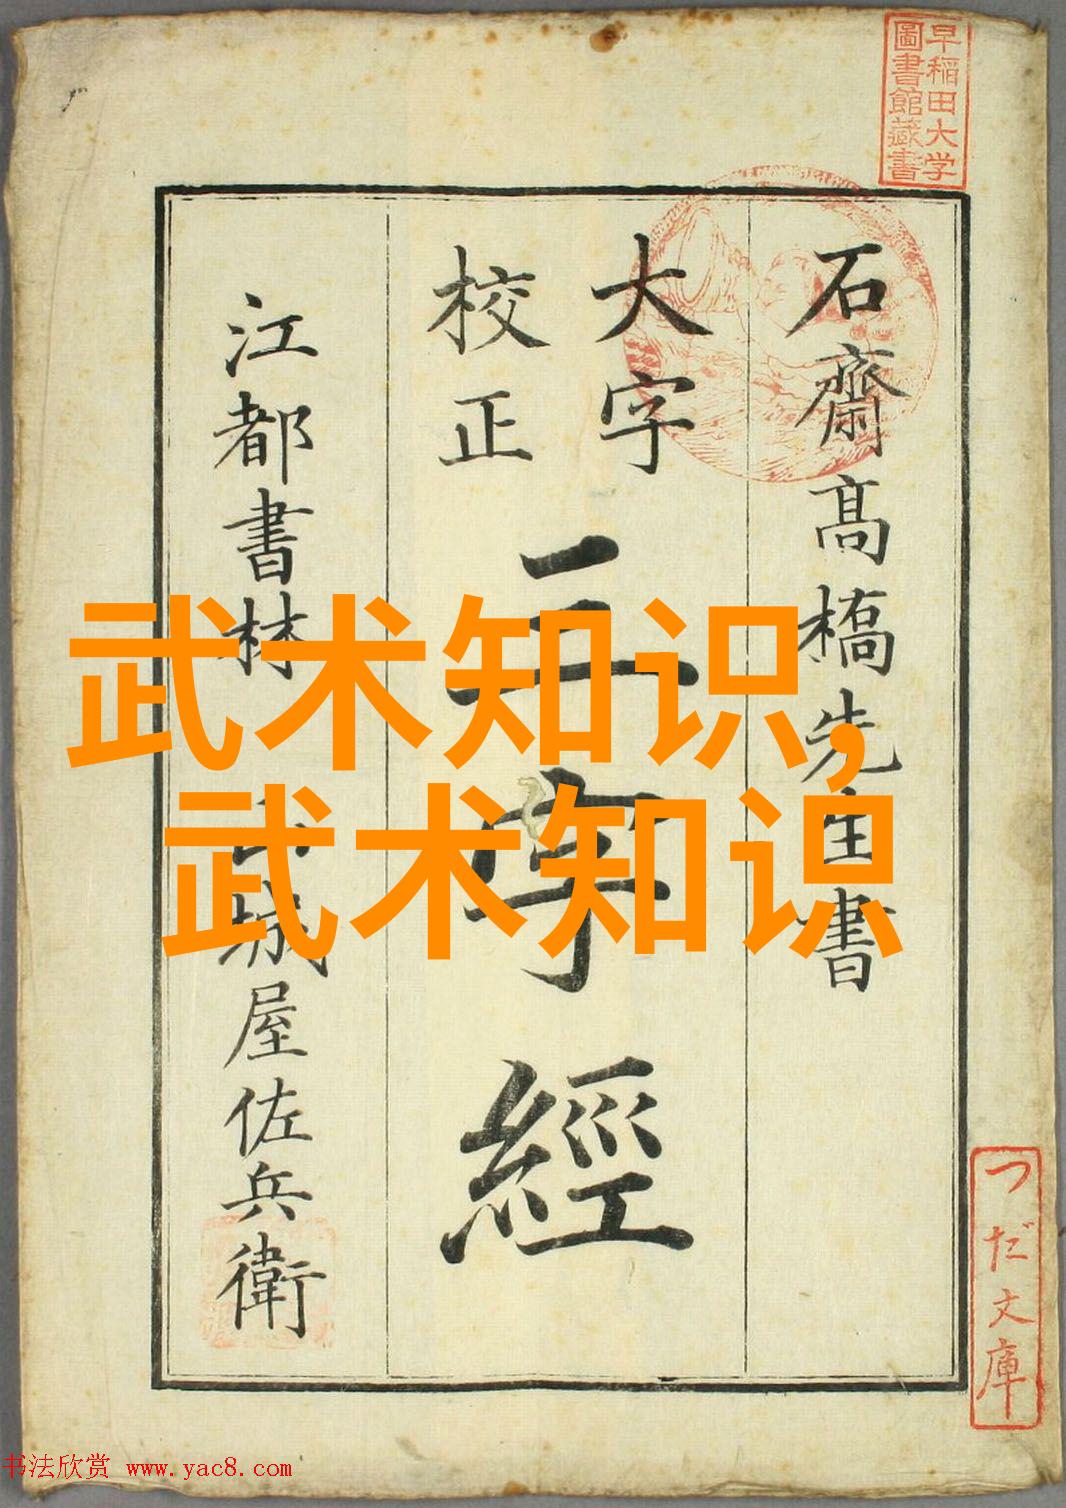 早稲田大学
圖書館藏書
石齋高橋先生書
大字
校正
三字經
江都書林
城屋佐兵衛
つだ文庫
武术知识,
武术知识
书法欣赏 www.yac8.com